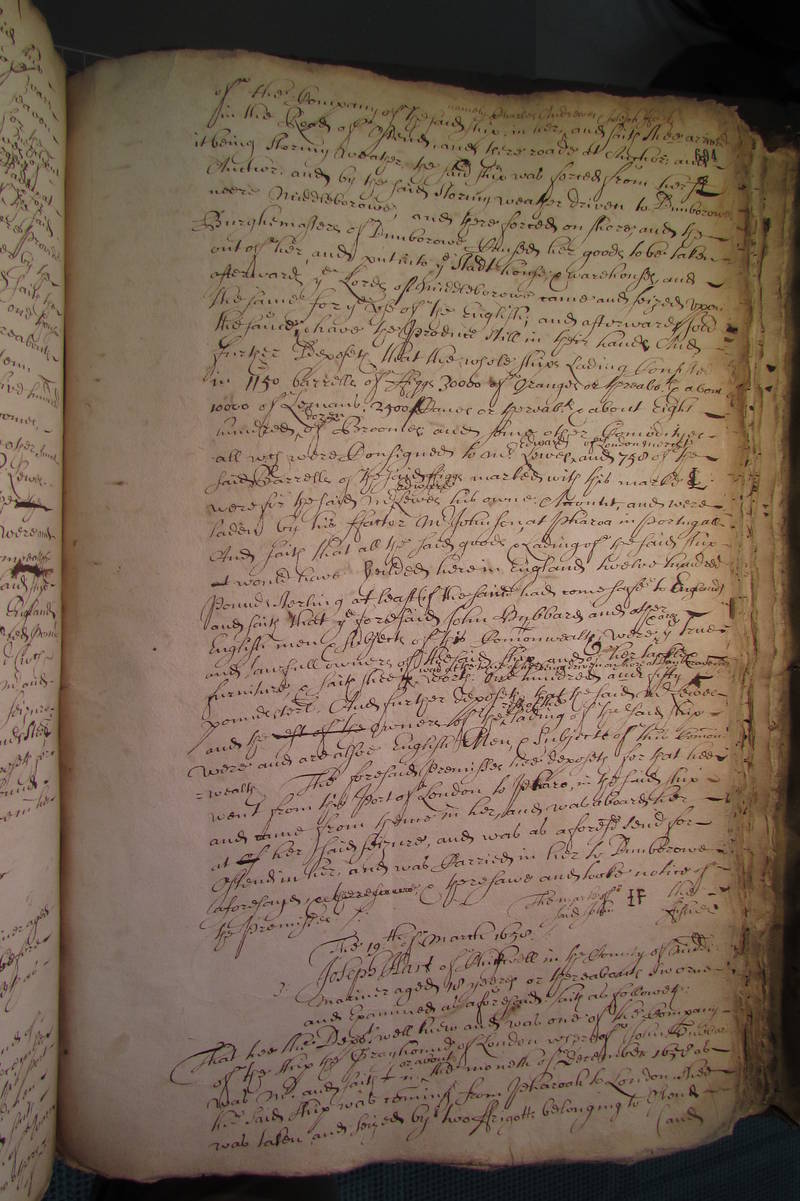 namely Charles Andrewes & Joseph Hart
of the Company of the said ship in her, and saith shee arived
in the Road of Ostend, and there roade at Anchor, and
684
it being stormy weather the said ship was forced from her
Anchor, and by the said stormy weather driven to Dunborowe
neere Middleborowe, and there forced on shore, and the
Burghemasters of Dunborowe caused her goods to be taken
out of her, and put into ye Stadt house & warehouses, and
afterwards ye Lords of Middleborowe came and seized upon
the same for ye use of the English, and afterwards sold
the same & have the produce still in their hands And
further deposeth that the whole ships lading consisted
in 1150 barrells of ffiggs 30000 of Oranges or thereabts & about
10000 of Lemons, 2500 Canes or thereabts & about eight
hundred dozen of Broomes and some other Comodityes
all wch were Consigned to mr Edward Lewes of London mercht, and 750 of the
said Barrells of the said ffiggs marked with this marke
were for the said Mr Edward Lewes his owne Accompt, and were
laden by his ffactor Mr Johnson at Pharoa in Portugall
And saith that all the said goods & Lading of the said ship
would have yeilded here in England twelve hundred
Pounds sterling at least if the said had come safe to England
and saith that ye foresaid John Hubbard and other
English men & subjects of this Comonwealth were ye true
and lawfull owners of the said ship and of her tackle &
furniture & saith shee was worth one hundred and fifty
pounds sterl. And further deposeth that the said Mr Lewes
and the rest of the Owners of the lading of the said ship
were and are alsoe English Men, & Subjects of this Common
=wealth. The foresaid premisses hee deposeth for that hee
went from this Port of London to Pharo, in the said ship
and came from thence in her, and was aboard her
at her said seizure, and was as aforesd send for
Ostend in her, and was Carried in her to Dunborowe
aforesayd, & there sawe and tooke notice of
the premisses
The marke of IF the
said John Fisher
The 19th of March 1658.
Joseph Hart of Shadwell in the County of Midd:
Mariner aged 18 yeeres or thereabouts sworne
and Examined as aforesaid saith as followeth:
That hee this Dept. well knew and was one of the Company
of the ship the Grayhound of London whereof John Hubbard
was Mr. and saith in or about the moneth of December 1658 as
the said ship was coming from Pharoah to London shee
was taken and seized by two ffrigotts belonging to Ostend
(and